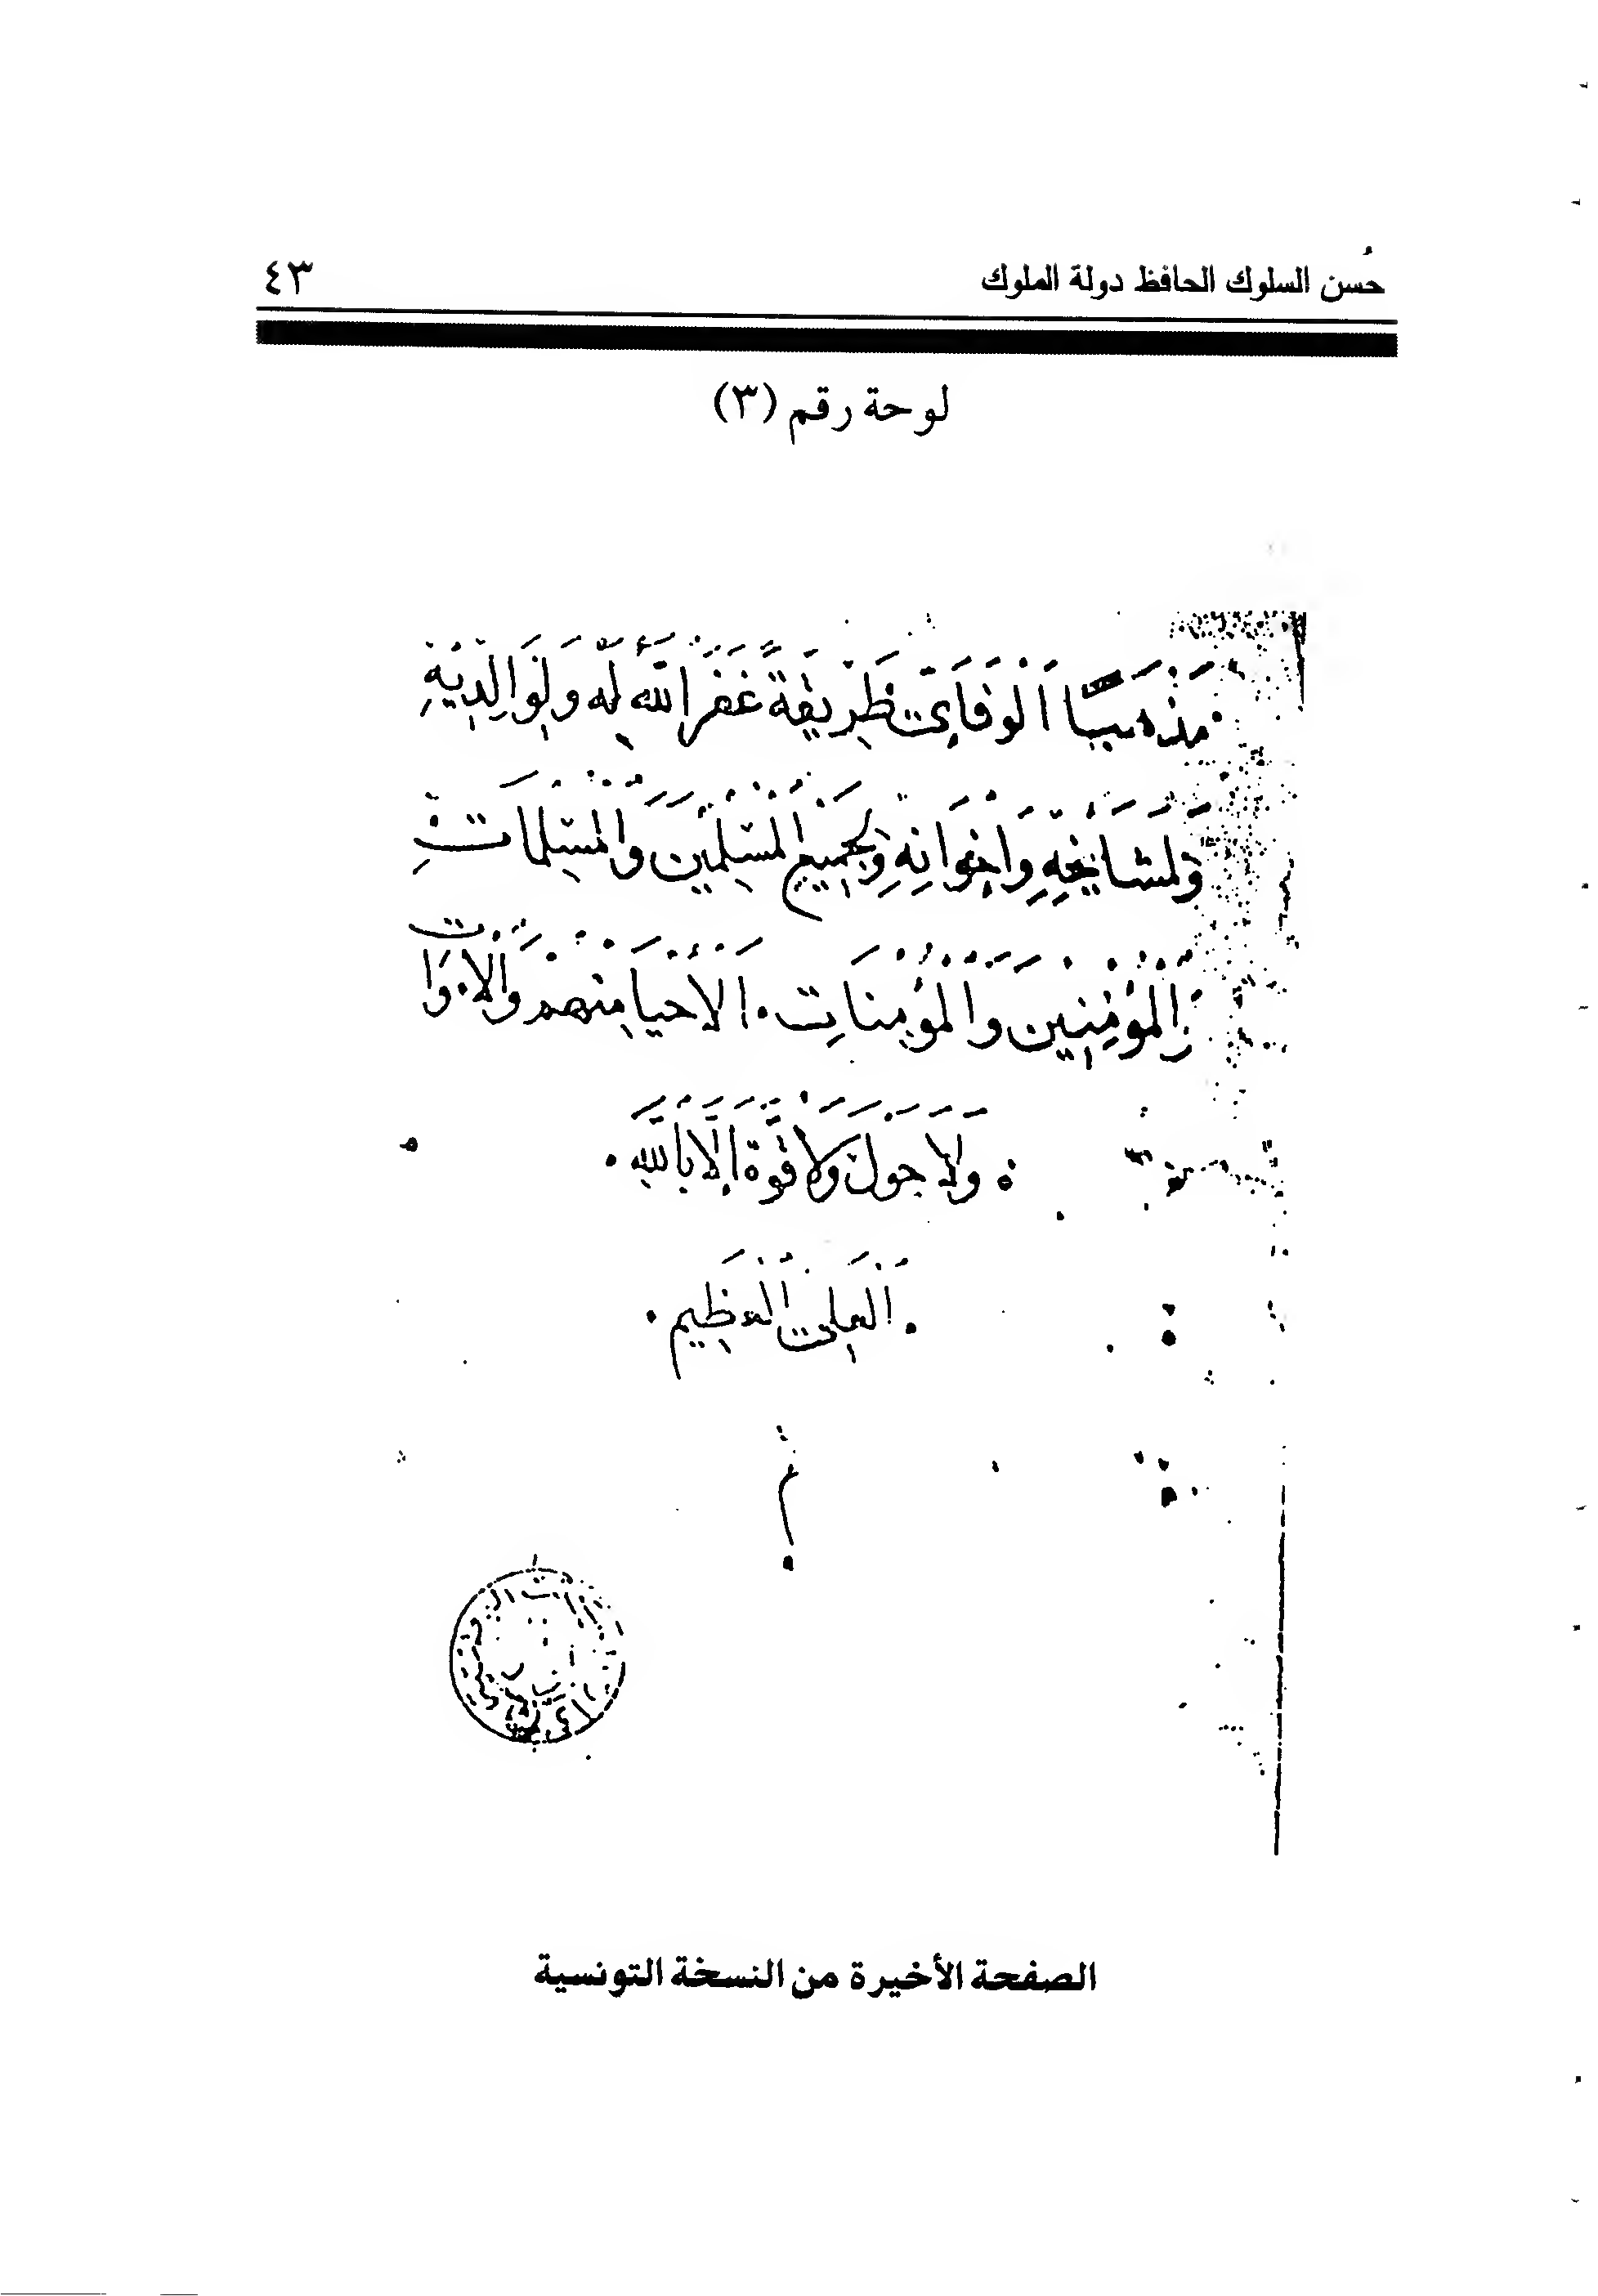 حُسن السلوك الحافظ دولة الملوك
٤٣
لوحة رقم (٣)
مَذْهَبًا اَلْوَفَائِىّ طَرِيْقَةً غَفَرَ اللّٰهُ لَهُ وَلِوَالِدَيْهِ
وَلِمَشَايِخِهِ وَاِخْوَانِهِ وَلِجَمِيْعِ الْمُسْلِمِيْنَ وَالْمُسْلِمَاتِ
وَالْمُؤْمِنِيْنَ وَالْمُؤْمِنَاتِ. اَلْاَحْيَا مِنْهُمْ وَالْاَمْوَات
وَلَا حَوْلَ وَلَا قُوَّةَ اِلَّا بِاللّٰهِ.
اَلْعَلِىِّ الْعَظِيْمِ.
م
الصفحة الأخيرة من النسخة التونسية